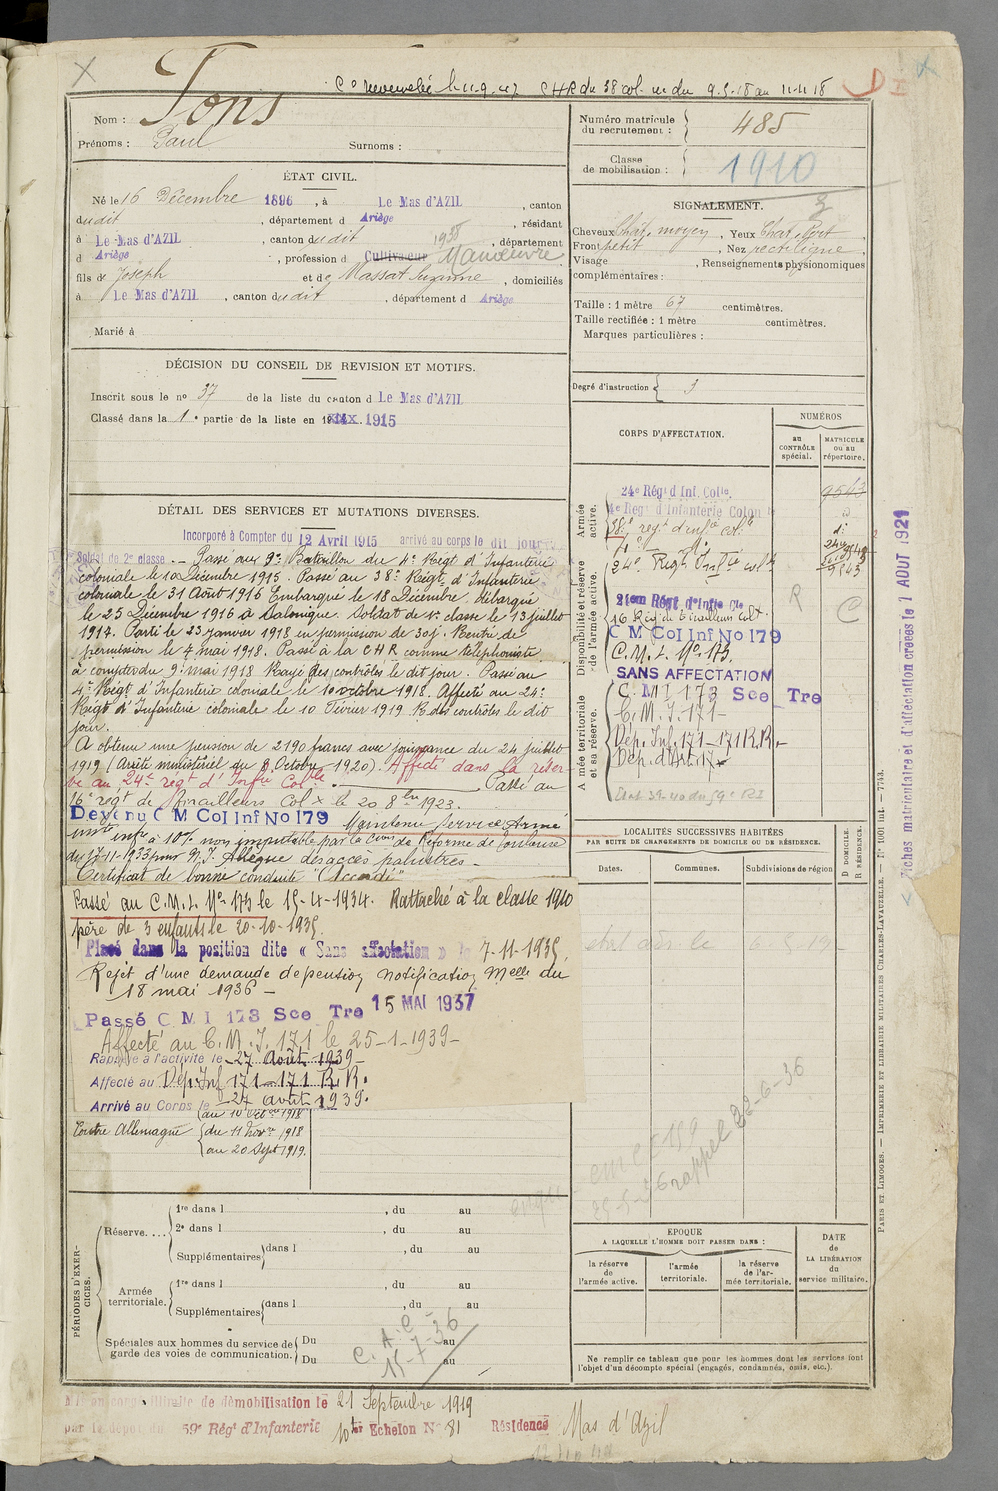 Cᵒ renouvelée le 11-9-42 CHR du 38 col. du 9-5-18 au 11-11-18
D I
Nom : Pons
Prénoms : Paul Surnoms :
Numéro matricule du recrutement : 485
Classe de mobilisation : 1910
ÉTAT CIVIL.
Né le 16 Décembre 1896, à Le Mas d'AZIL, canton
dudit, département d Ariège, résidant
à Le Mas d'AZIL, canton dudit 1935, département
d Ariège, profession d Cultivateur Manœuvre
fils de Joseph et de Massat Suzanne, domiciliés
à Le Mas d'AZIL, canton dudit, département d Ariège
Marié à
SIGNALEMENT.
Cheveux Chât. moyen, Yeux Chât.
Front petit, Nez rectiligne,
Visage , Renseignements physionomiques
complémentaires :
Taille : 1 mètre 67 centimètres.
Taille rectifiée : 1 mètre centimètres.
Marques particulières :
Degré d'instruction 3
DÉCISION DU CONSEIL DE REVISION ET MOTIFS.
Inscrit sous le nº 37 de la liste du canton d Le Mas d'AZIL
Classé dans la 1ᵉ partie de la liste en 1915
DÉTAIL DES SERVICES ET MUTATIONS DIVERSES.
Incorporé à Compter du 12 Avril 1915 arrivé au corps le dit jour
Soldat de 2ᵉ classe. — Passé au 9ᵉ Bataillon du 4ᵉ Régt d'Infanterie
coloniale le 10 Décembre 1915. Passé au 38ᵉ Régt d'Infanterie
coloniale le 31 Août 1916 Embarqué le 18 Décembre, débarqué
le 25 Décembre 1916 à Salonique. Soldat de 1ᵉ classe le 13 juillet
1917. Parti le 23 janvier 1918 en permission de 30j. Rentré de
permission le 4 mai 1918. Passé à la CHR comme téléphoniste
à compter du 9 mai 1918 Rayé des contrôles le dit jour. Passé au
4ᵉ Régt d'Infanterie coloniale le 10 octobre 1918. Affecté au 24ᵉ
Régt d'Infanterie coloniale le 10 Février 1919 R. des contrôles le dit
jour.
A obtenu une pension de 2190 francs avec jouissance du 24 juillet
1919 (Arrêté ministériel du 8 Octobre 1920). Affecté dans la réser-
ve au 24ᵉ régt d'Infie Colle Passé au
16ᵉ régt de Tirailleurs Colx le 20 8bre 1923.
Devenu C M Col Inf No 179 Maintenu Service Armé
invté infre à 10% non imputable par la Cion de Réforme de Toulouse
du 17-11-1933 pour P. I. Allègue des accès palustres —
Certificat de bonne conduite "Accordé"
Passé au C.M.I. Nº 173 le 15-4-1934. Rattaché à la classe 1910
père de 3 enfants le 20-10-1935.
Placé dans la position dite « Sans affectation » le 7-11-1935.
Rejet d'une demande de pension notification Melle du
18 mai 1936 —
Passé C M I 173 Sce Tre 15 MAI 1937
Affecté au C.M.I. 171 le 25-1-1939 —
Rappelé à l'activité le 27 août 1939 —
Affecté au Dép. Inf 171 — 171 R.R.
Arrivé au Corps le 27 août 1939.
au 10 Octobre 1918
Contre Allemagne du 11 Nov. 1918
au 20 Sept 1919.
CORPS D'AFFECTATION.
NUMÉROS
au CONTRÔLE spécial.
MATRICULE ou au répertoire.
Armée active.
24ᵉ Régt d Inf. Colle. 9543
4ᵉ Regt d'Infanterie Colon
38ᵉ régt d'infie colle
24ᵉ Régt Infie col 9543
Disponibilité et réserve de l'armée active.
24ème Régt d'Infie Cle R C
16 Régt de Tirailleurs Colx
C M Col Inf No 179
C.M.I. Nº 173.
SANS AFFECTATION
Armée territoriale et sa réserve.
C. M I 173 Sce Tre
C.M.I. 171 —
Dép. Inf. 171 — 171 R.R. —
Dép. d'Art 17
Etat 39-40 du 59ᵉ RI
LOCALITÉS SUCCESSIVES HABITÉES
PAR SUITE DE CHANGEMENTS DE DOMICILE OU DE RÉSIDENCE.
Dates. Communes. Subdivisions de région
D DOMICILE.
R RÉSIDENCE.
rappel 22-6-36
25-5-36
PÉRIODES D'EXERCICES.
Réserve....
1ʳᵉ dans l , du au
2ᵉ dans l , du au
Supplémentaires dans l , du au
Armée territoriale.
1ʳᵉ dans l , du au
Supplémentaires dans l , du au
Spéciales aux hommes du service de garde des voies de communication.
Du au
Du au
C. A. C —
15-7-36
EPOQUE
A LAQUELLE L'HOMME DOIT PASSER DANS :
la réserve de l'armée active.
l'armée territoriale.
la réserve de l'armée territoriale.
DATE de LA LIBÉRATION du service militaire.
Ne remplir ce tableau que pour les hommes dont les services font
l'objet d'un décompte spécial (engagés, condamnés, omis, etc.).
Mis en congé illimité de démobilisation le 21 Septembre 1919
par le dépôt du 59ᵉ Régt d'Infanterie 10ᵗ Echelon Nº 81 Résidence Mas d'Azil
Fiches matriculaire et d'affectation créées le 1 AOUT 1921
PARIS ET LIMOGES. — IMPRIMERIE ET LIBRAIRIE MILITAIRES CHARLES-LAVAUZELLE. — Nº 1001 int. — 7743.